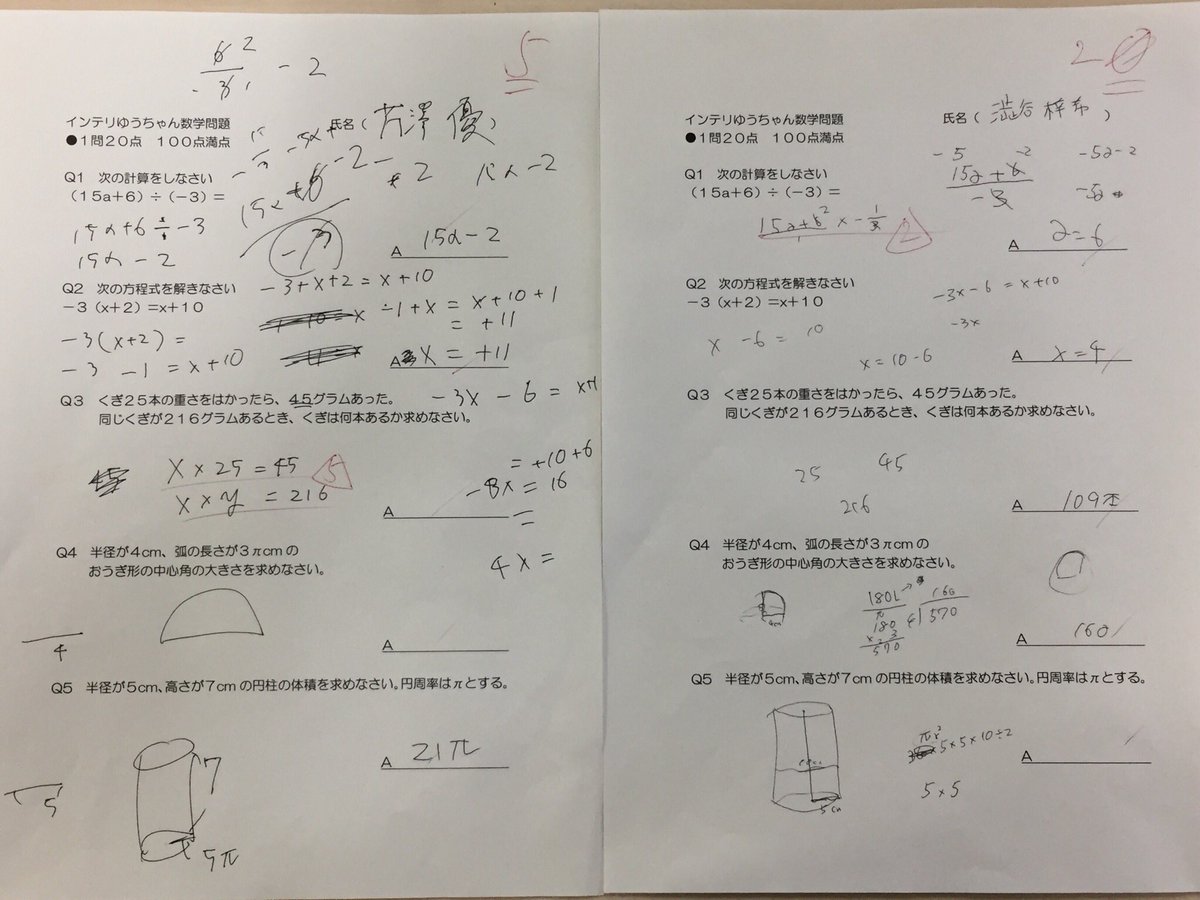 6 2
-3 1 - 2
5
インテリゆうちゃん数学問題
氏名（芹澤 優）
●1問20点 100点満点
Q1 次の計算をしなさい
（15a＋6）÷（−3）＝
15a+6 ÷ -3
15a - 2
A 15a-2
Q2 次の方程式を解きなさい
−3（x＋2）＝x＋10
-3+x+2 = x+10
÷1+x = x+10+1
= +11
-3(x+2) =
-3 -1 = x+10
A x = +11
Q3 くぎ25本の重さをはかったら、45グラムあった。
同じくぎが216グラムあるとき、くぎは何本あるか求めなさい。
-3x - 6 = x+1
x×25=45
x×y=216
5
= +10+6
-8x = 16
A
Q4 半径が4cm、弧の長さが3πcmの
おうぎ形の中心角の大きさを求めなさい。
4x=
4
A
Q5 半径が5cm、高さが7cmの円柱の体積を求めなさい。円周率はπとする。
A 21π
7
5
5π
20
インテリゆうちゃん数学問題
氏名（澁谷梓希）
●1問20点 100点満点
Q1 次の計算をしなさい
（15a＋6）÷（−3）＝
-5 -2
15a+6
-3
-5a-2
-5a
15a+6 2 × -1/3
2
A a=6
Q2 次の方程式を解きなさい
−3（x＋2）＝x＋10
-3x-6 = x+10
-3x
x -6 = 10
x=10-6
A x=4
Q3 くぎ25本の重さをはかったら、45グラムあった。
同じくぎが216グラムあるとき、くぎは何本あるか求めなさい。
25 45
216
A 109本
Q4 半径が4cm、弧の長さが3πcmの
おうぎ形の中心角の大きさを求めなさい。
4cm
180l
π
180
× 3
570
160
4 570
A 160
Q5 半径が5cm、高さが7cmの円柱の体積を求めなさい。円周率はπとする。
πr²
×5×5×10÷2
5×5
5cm
A